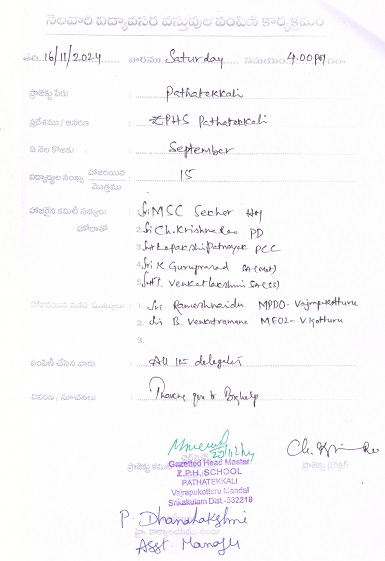 నెలవారి విద్యావసర వస్తువుల పంపిణీ కార్యక్రమం
తేది. 16/11/2024 వారము Saturday సమయం 4.00 PM గం
ప్రాజెక్టు పేరు : Pathatekkali
ప్రదేశము / ఆవరణ : ZPHS Pathatekkali
ఏ నెల కొరకు : September
విద్యార్థుల సంఖ్య హాజరయిన / మొత్తము : 15
హాజరైన కమిటీ సభ్యులు : 1. Sri MSC Sechor HM
హోదాతో 2. Sri Ch. Krishna Rao PD
3. Smt Lepakshi Patnayak PCC
4. Sri K. Guruprasad SA (Mat)
5. Smt T. Venkatlakshmi SA (SS)
1. Sri Rameshnaidu MPDO - Vajrapukotturu
2. Sri B. Venkatramana MEO2 - V. Kotturu
3.
పంపిణీ చేసిన వారు : All the delegates
వివరణ / సూచనలు : Thank you to
Gazetted Head Master
Z.P.H. SCHOOL
PATHATEKKALI
Vajrapukotturu Mandal
Srikakulam Dist.-532218
ప్రాజెక్టు డైరెక్టర్
P. Dhanalakshmi
Asst. Manager